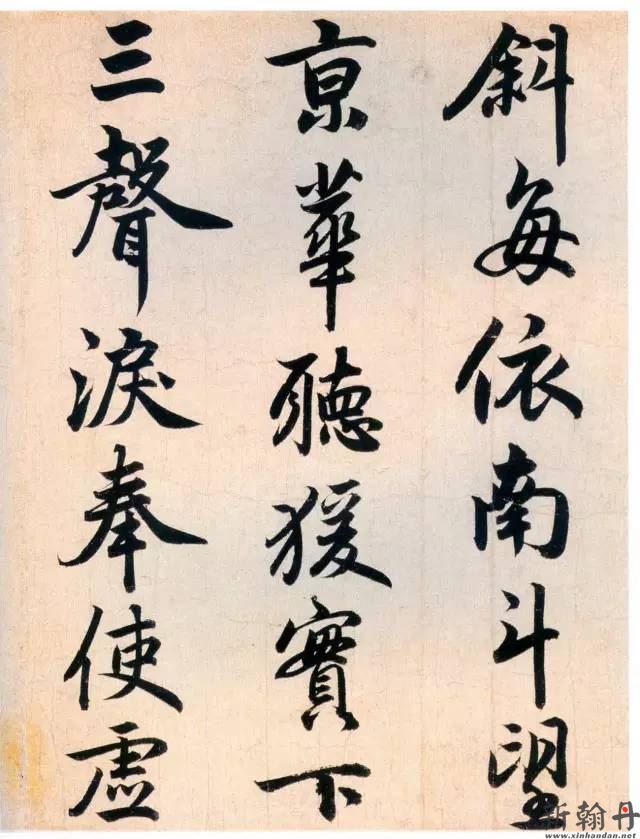 斜每依南斗望
京華聽猨實下
三聲淚奉使虛
新翰丹
www.xinhandan.net